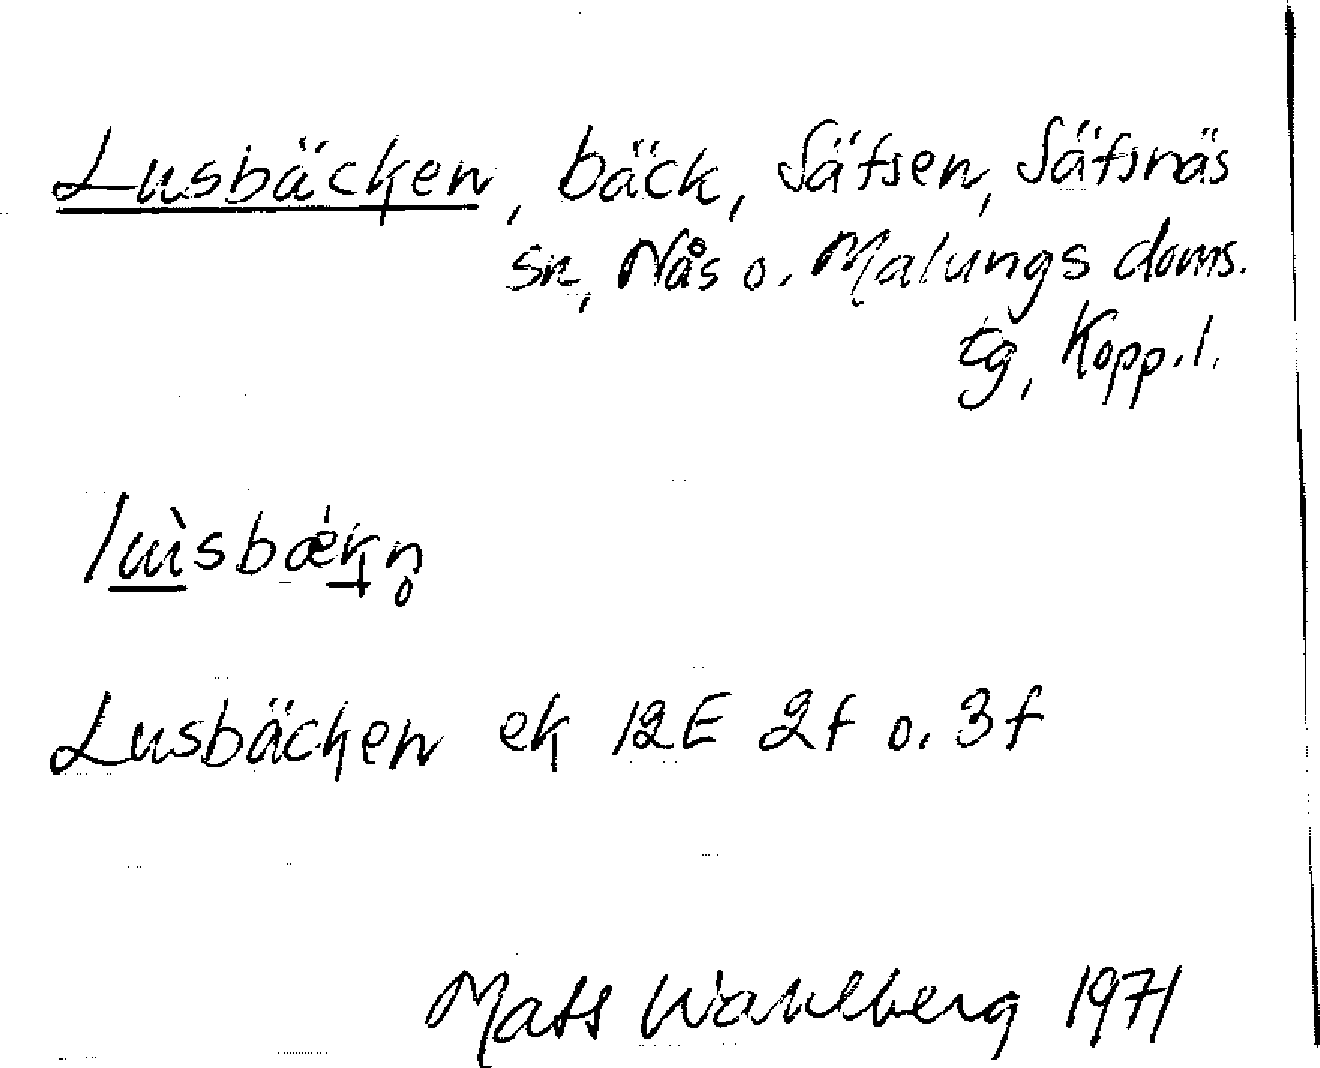 Lusbäcken, bäck, Säfsen, Säfsnäs
sn, Nås o. Malungs doms.
tg, Kopp. l.
lɯ̀sbækn̥
Lusbäcken ek 12E 2f o. 3f
Mats Wahlberg 1971